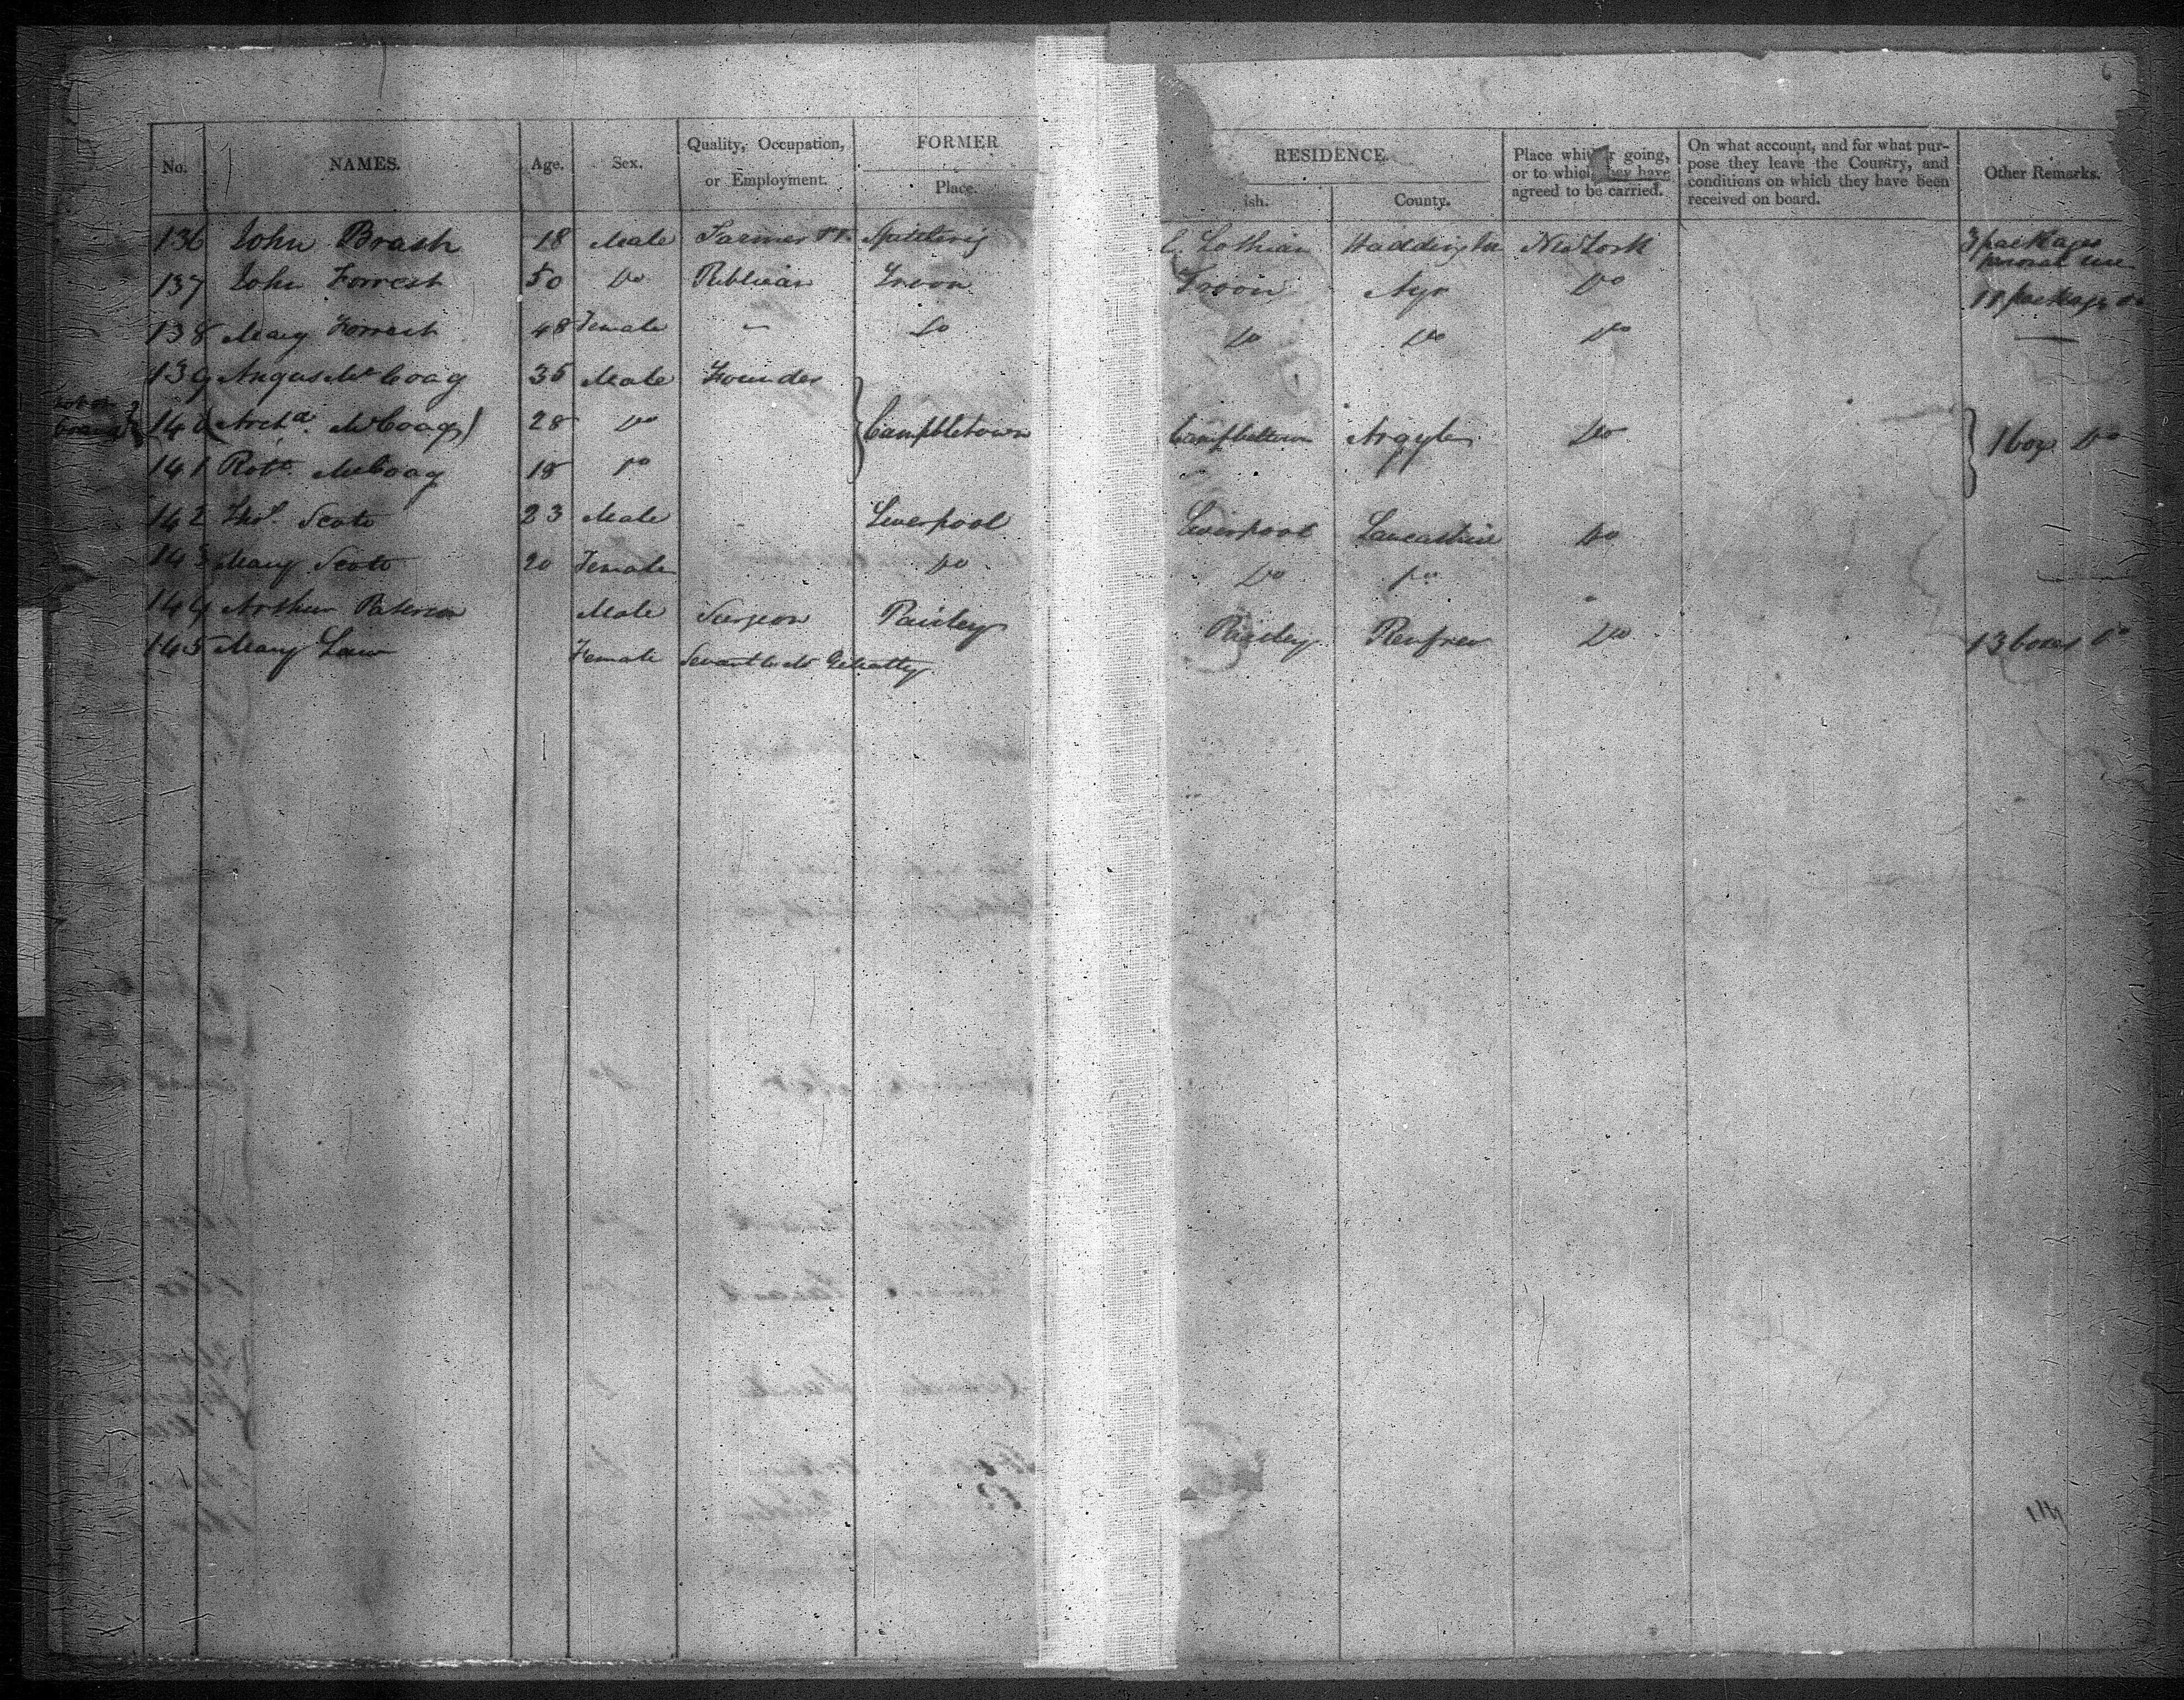 No. NAMES. Age. Sex. Quality, Occupation, or Employment. FORMER Place. RESIDENCE. ish. County. Place whi r going, or to which they have agreed to be carried. On what account, and for what purpose they leave the Country, and conditions on which they have been received on board. Other Remarks.
136 John Brash 18 Male Farmer E. Lothian Haddington New York 3 packages
137 John Forrest 50 Do Publican Troon Troon Ayr Do 11 packages Do
138 Mary Forrest 48 Female - Do Do Do Do —
139 Angus McCoag 35 Male Founder
Not on board } 140 (Archd. McCoag) 28 Do Campbletown Campbeltown Argyle Do 1 box Do
141 Robt. McCoag 18 Do
142 Thos. Scott 23 Male - Liverpool Liverpool Lancashire Do
143 Mary Scott 20 Female Do Do Do —
144 Arthur Paterson Male Surgeon Paisley Paisley Renfrew Do 13 boxes Do
145 Mary Law Female Servant to